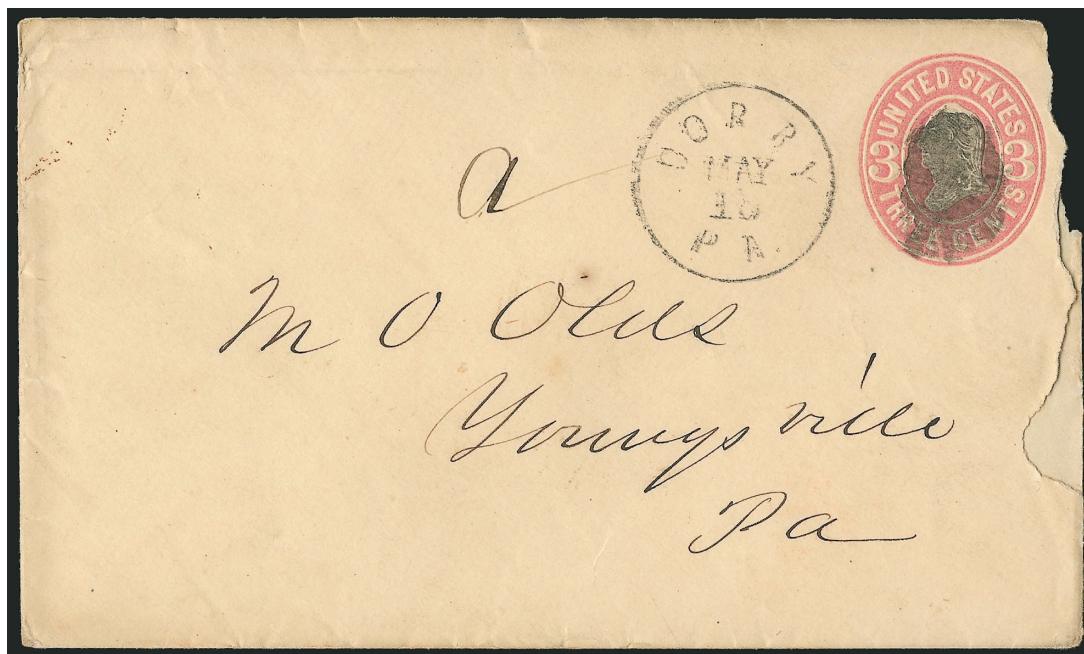 UNITED STATES
3 3
THREE CENTS
CORRY
MAY
PA.
a
M O Olds
Youngsville
Pa